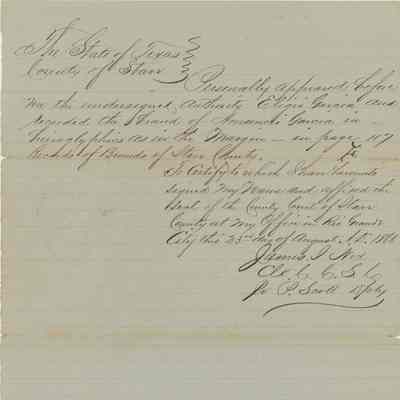 The State of Texas
County of Starr
Personally appeared before
me the undersigned Authority Eligio Garcia and
recorded the Brand of Garcia in
hieroglyphics as in the Margin - in page 117
Records of Brands of Starr County.
To Certify to which I have hereunto
signed my Name and affixed the
Seal of the County Court of Starr
County at my Office in Rio Grande
City this 23rd day of August A.D.
James J Nix
Clk C. C. S. C.
Pr P. Scott Dpty